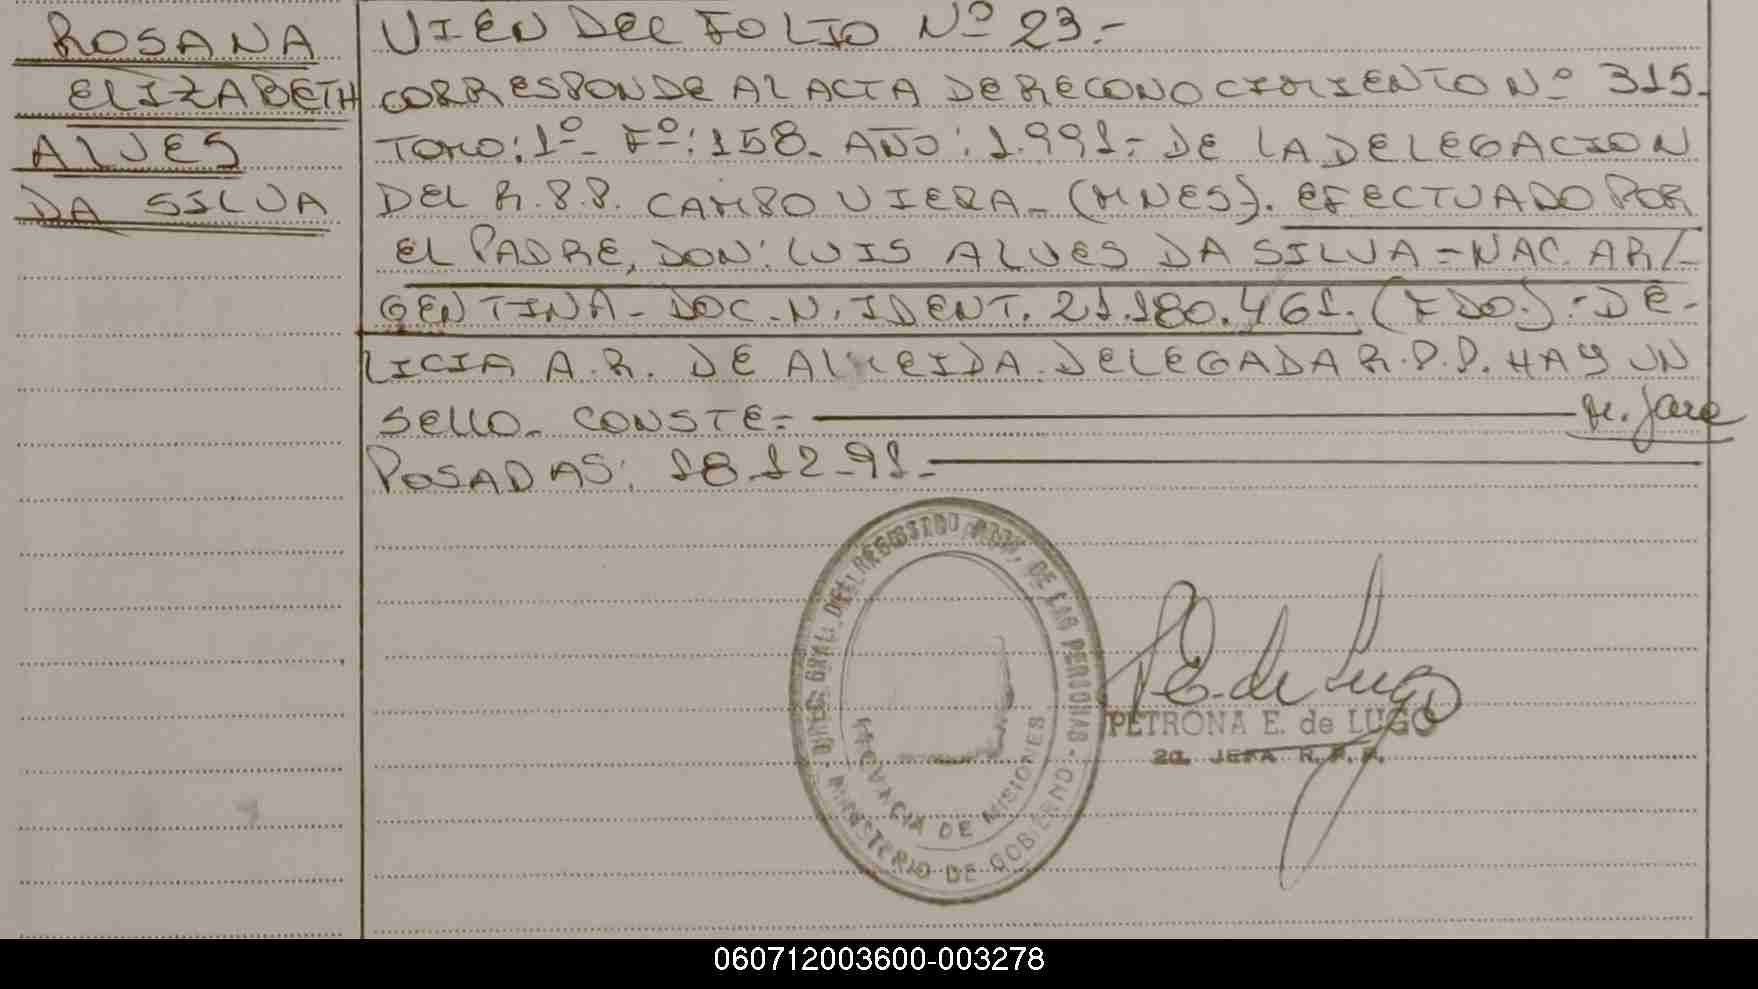 ROSANA
ELIZABETH
ALVES
DA SILVA
VIEN DEL FOLIO Nº 23.-
CORRESPONDE AL ACTA DE RECONOCIMIENTO Nº 315.
TOMO: 1º- Fº: 158. AÑO: 1.991.- DE LA DELEGACION
DEL R.P.P. CAMPO VIERA - (MNES). EFECTUADO POR
EL PADRE, DON: LUIS ALVES DA SILVA = NAC. AR/-
GENTINA - DOC. N. IDENT. 21.180.461. (FDO.) - DE-
LICIA A.R. DE ALMEIDA. DELEGADA R.P.P. HAY UN
SELLO. CONSTE =
POSADAS: 18-12-91.-
DIREC. GRAL. DEL REGISTRO PROV. DE LAS PERSONAS - MINISTERIO DE GOBIERNO -
PROVINCIA DE MISIONES
P.E. de Lugo
PETRONA E. de LUGO
2a. JEFA R. P. P.
060712003600-003278